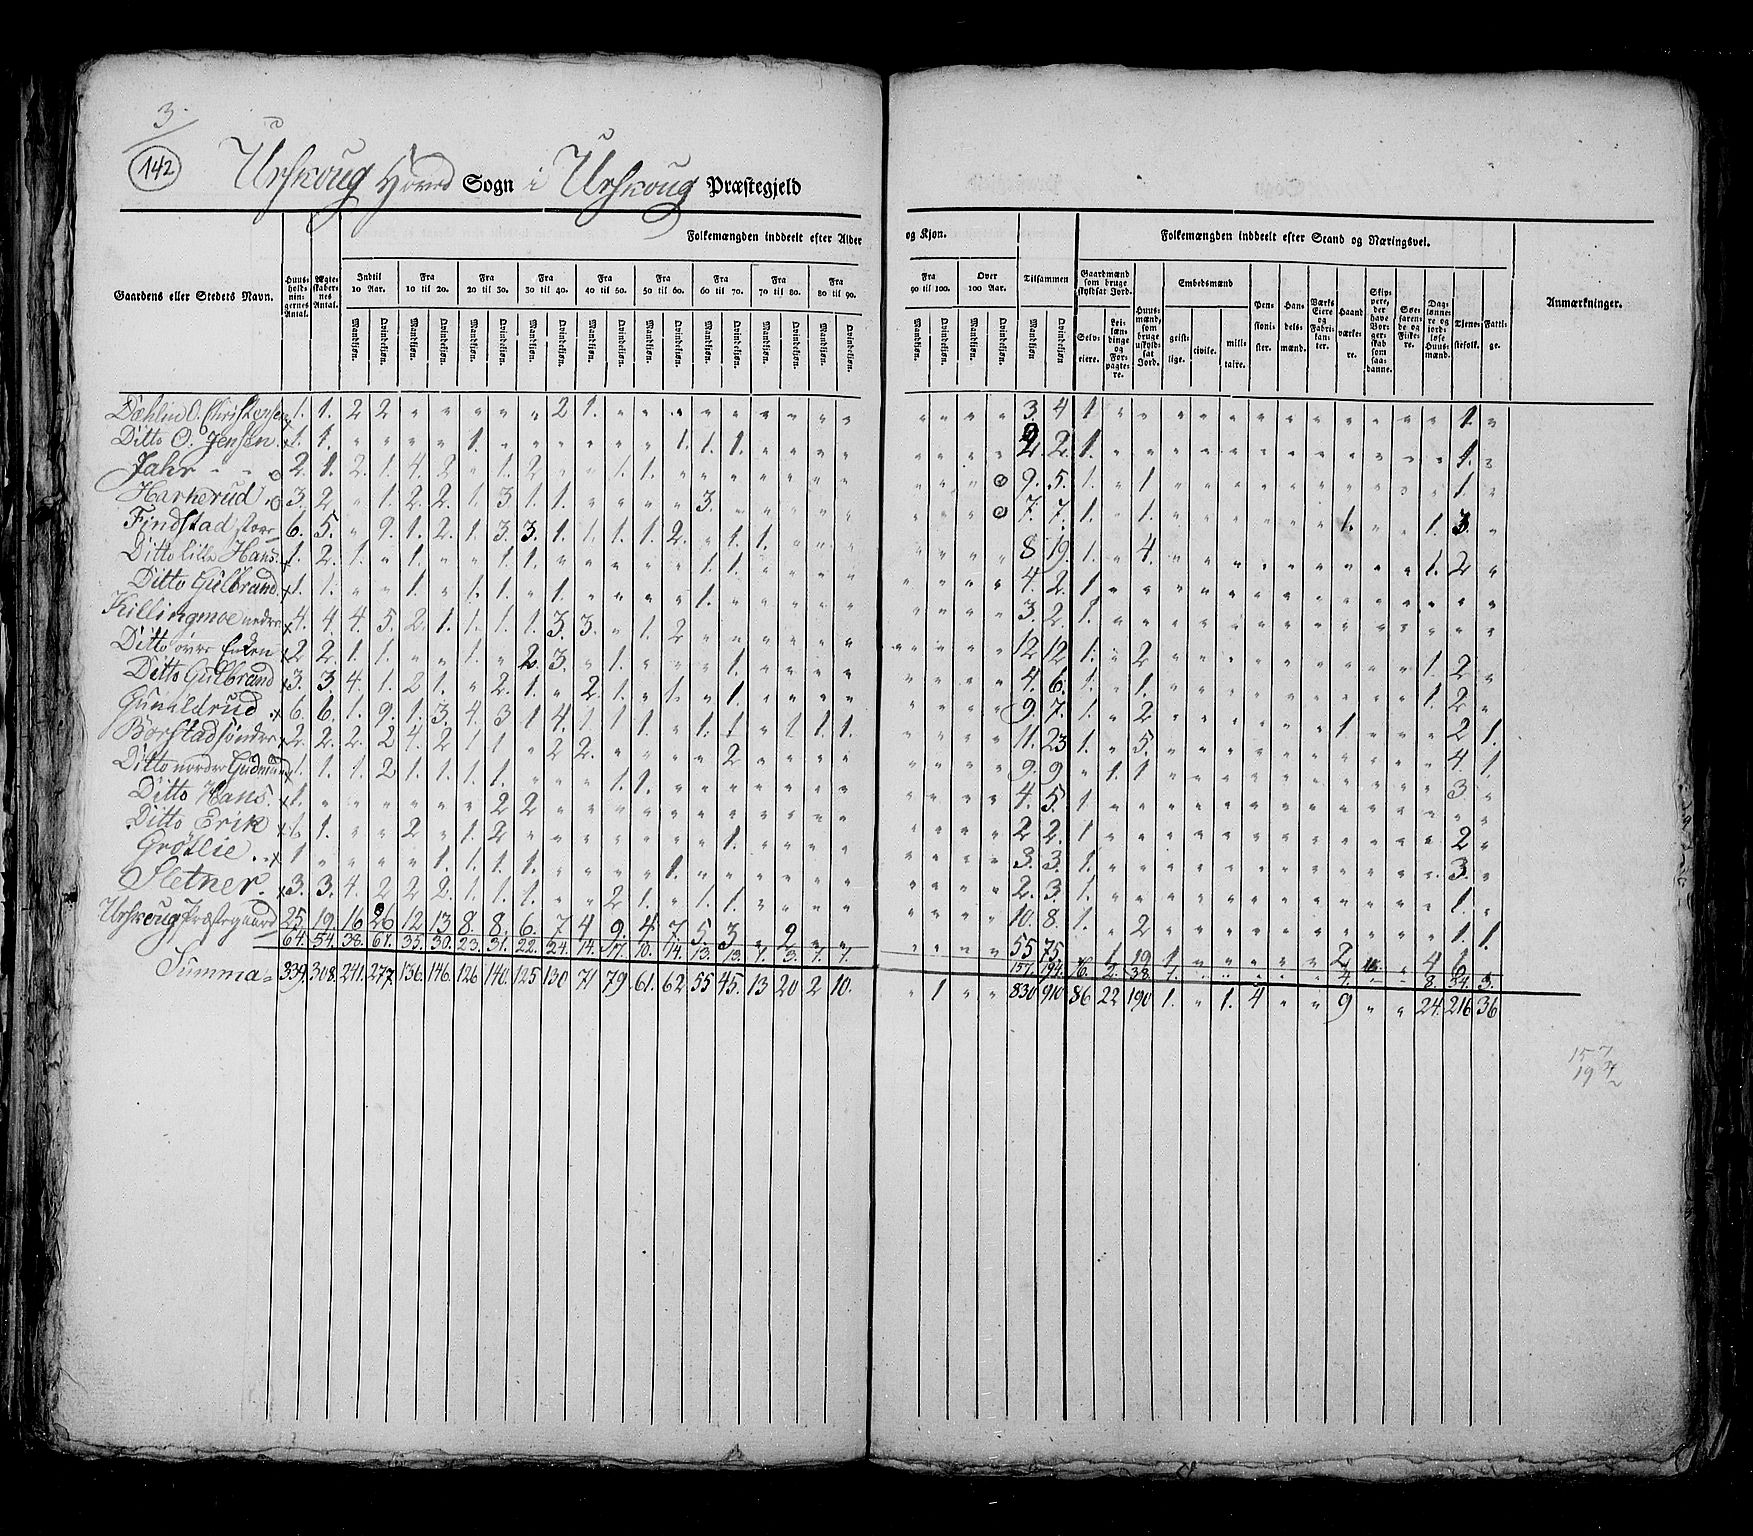 3.
142
Urskoug Hoved Sogn i Urskoug Præstegjeld
Folkemængden inddeelt efter Alder og Kjøn. Folkemængden inddeelt efter Stand og Næringsvei.
Gaardens eller Stedets Navn. Huus-holdnin-gernes Antal. Ægte-skaber-nes Antal. Indtil 10 Aar. Fra 10 til 20. Fra 20 til 30. Fra 30 til 40. Fra 40 til 50. Fra 50 til 60. Fra 60 til 70. Fra 70 til 80. Fra 80 til 90. Fra 90 til 100. Over 100 Aar. Tilsammen Gaardmænd som bruge skyldsat Jord. Huus-mænd, som bruge uskyld-sat Jord. Embedsmænd Pen-sioni-ster. Han-dels-mænd. Værks Eiere og Fabri-kan-ter. Haand værke-re. Skip-pere, der have Bor-ger-skab som saa-danne. Søe-faren-de og Fiske-re. Dag-lønne-re og jord-løse Huus-mænd. Tjene-stefolk. Fatti-ge. Anmærkninger.
Mandkjøn. Qvindekjøn. Selv-eiere. Lei-lændinge og For-pagte-re. geist-lige. civile. mili-taire.
Dæhlin O. Christensen 1. 1. 2 2 " " " " " 2 1. " " " " " " " " " " " " 3. 4 1 " " " " " " " " " " " " 1. "
Ditto O. Jensen 1. 1. " " " " 1. " " " " " " 1. 1. 1. " " " " " " " " 2. 2. 1. " " " " " " " " " " " " 1. "
Jahr 2. 1. 2. 1. 4. 2 " 1. 2 " " 1. 1. " " " " " " " 9. 5. 1. " 1 " " " " " " " " " " 1. "
Harkerud 3. 2 " 1. 2 2. 1. 3 1. 1. " " " " 3. " " " " " 7. 7. 1. " 1. " " " " " " 1. " " 1. 3. "
Findstad store 6. 5. " 9. 1. 2. 1. 3. 3. 1. 1. 1. 1. 2. " 1. 1. " " " 8 19. 1. " 4. " " " " " " " " " 1. 2 "
Ditto lille Hans. 1. 2. 1. " 1. " " 1. 1. " " " " " 1. 1. " " " " 4. 2. 1 " " " " " " " " " " " " " "
Ditto Gulbrand 1. 1. " " 1. " 1. 1. " 1. " " " " 1. " " " " " 3. 2. 1. " " " " " " " " " " " " " "
Killingmoe nedre 4. 4. 4. 5. 2. 1. 1. 1. 1. 3. 3. " 1. 2 " " " " " " 12 12 1. " 2 " " " " " " " " " 1. 2. "
Ditto øvre Enken 2 2. 1. 1. " " 1. " 2. 3. " 1. " " " 1. " " " " 4. 6. 1. " 1. " " " " " " " " " 1. 2 "
Ditto Gulbrand 3. 3. 4. 1. 2 1. " 2. 1. " 2. 1. " 1. " 1. " " " " 9. 7. 1. " 2 " " " " " " 1 " " " 2 1.
Gunildrud 6. 6. 1. 9. 1. 3. 4. 3 1 4. 1. 1 1 1. 1. 1. " 1. 1. 1. 11. 23 1. " 5. " " " " " " " " " " 4. 1.
Borstad søndre 2. 2. 2. 2 4. 2 1. 1 " 2 2. " " " " 2 " " " " 9. 9 " 1. 1 " " " " " " " " " " 3. "
Ditto nordre Gudmund 1. 1. 1. 2 1. 1. 1. 1. " " " 1. 1. " " " " " " " 4. 5. 1 " " " " " " " " " " " " " "
Ditto Hans. 1. " " " " " " 2 2 " " " " " " " " " " " 2 2. 1 " " " " " " " " " " " " 2 "
Ditto Erik 1. 1. " " 2 " 1. 2 " " " " " " " 1. " " " " 3. 3. 1. " " " " " " " " " " " " 3. "
Grøtlie 1 " " " " 1. 1. 1. 1. " " " " 1. " " " " " " 2. 3. 1. " " " " " " " " " " " " 1. "
Sletner. 3. 3. 4. 2 2 2. 1. 1. 1. " " 2 1. " 1. 1. " " " " 10. 8. 1. " 2 " " " " " " " " " " 1. 1.
Urskoug Præstegaard 25 19. 16 26 12 13. 8. 8. 6. 7 4 9. 4. 7. 5. 3 " 2 " " 55 75. " 1 19 1 " " " " " 2 " " 4 6
64. 54. 38. 61. 35. 30. 23. 31. 22. 24. 14. 17. 10. 14. 13. 13. 1. 3. 1. 1. 157. 194. 16. 2. 38. 1. 4. 8. 24. 3.
Summa = 339. 308. 241. 277. 136. 146. 126 140. 125 130 71 79. 61. 62 55 45. 13 20 2 10. " 1 " " 830 910 86 22 190 1. " 1. 4 " " 9 " " 24. 216 36
157
194